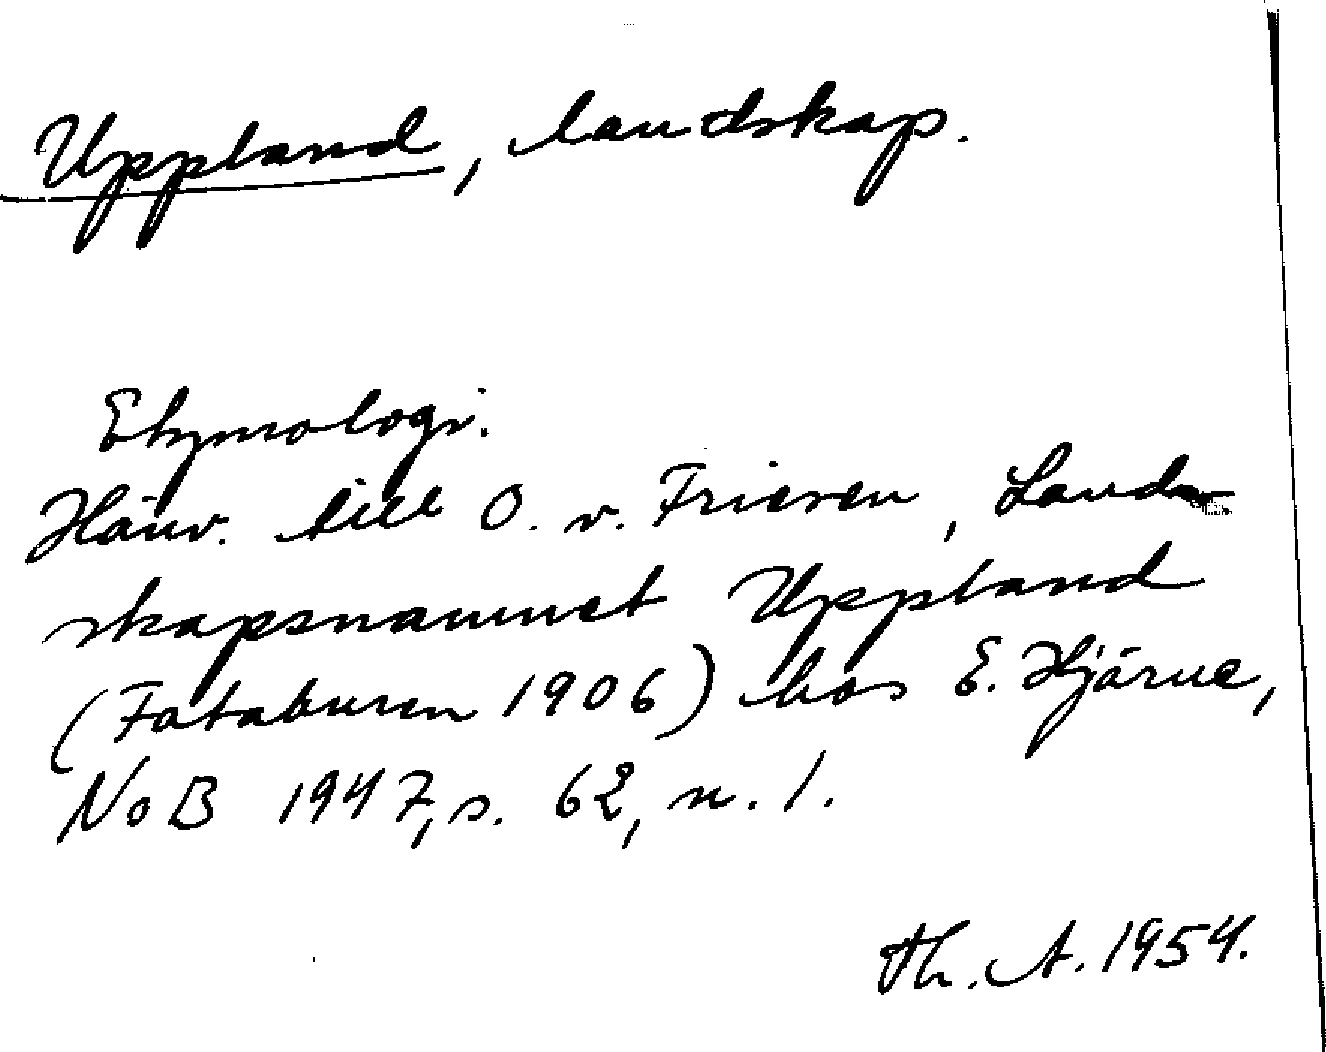 Uppland, landskap.
Etymologi.
Hänv. till O. v. Friesen, Land-
skapsnamnet Uppland
(Fataburen 1906) hos E. Hjärne,
NoB 1947, s. 62, n. 1.
Th. A. 1954.